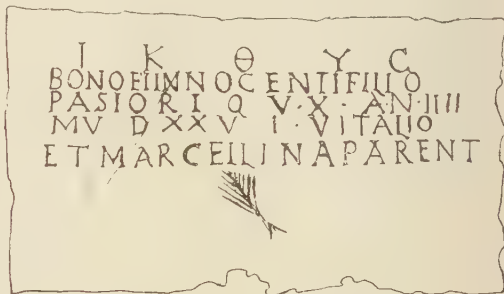 I K Θ Y C
BONOETINNOCENTIFILIO
PASTORI Q V·X·AN·IIII
MV DXXV I·VITALIO
ETMARCELLINAPARENT